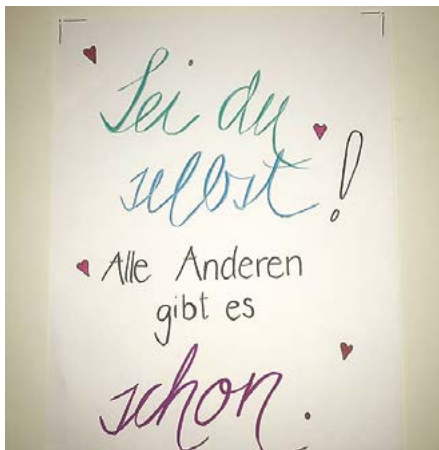 Sei du
selbst!
Alle Anderen
gibt es
schon.